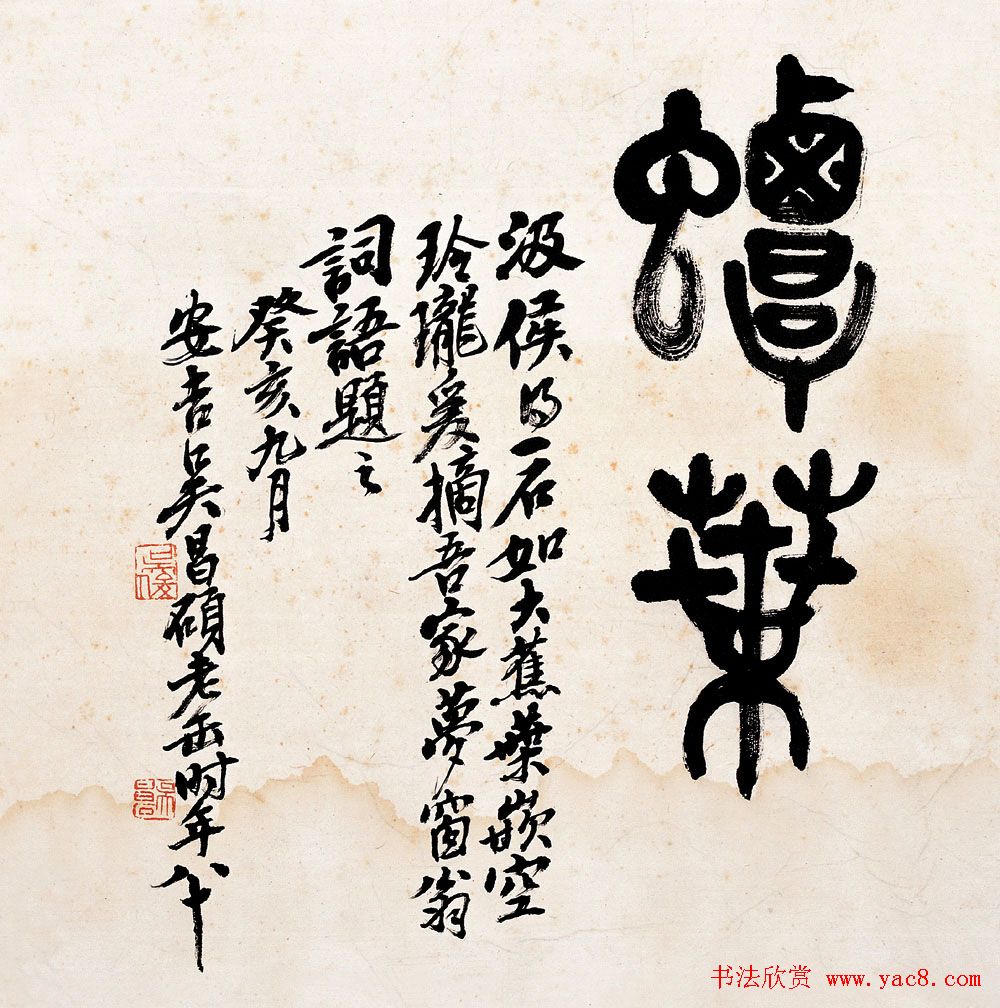 蟫葉
汲侯得一石如大蕉葉嵌空
玲瓏爰摘吾家夢窗翁
詞語題之
癸亥九月
安吉吳昌碩老缶时年八十
书法欣赏 www.yac8.com